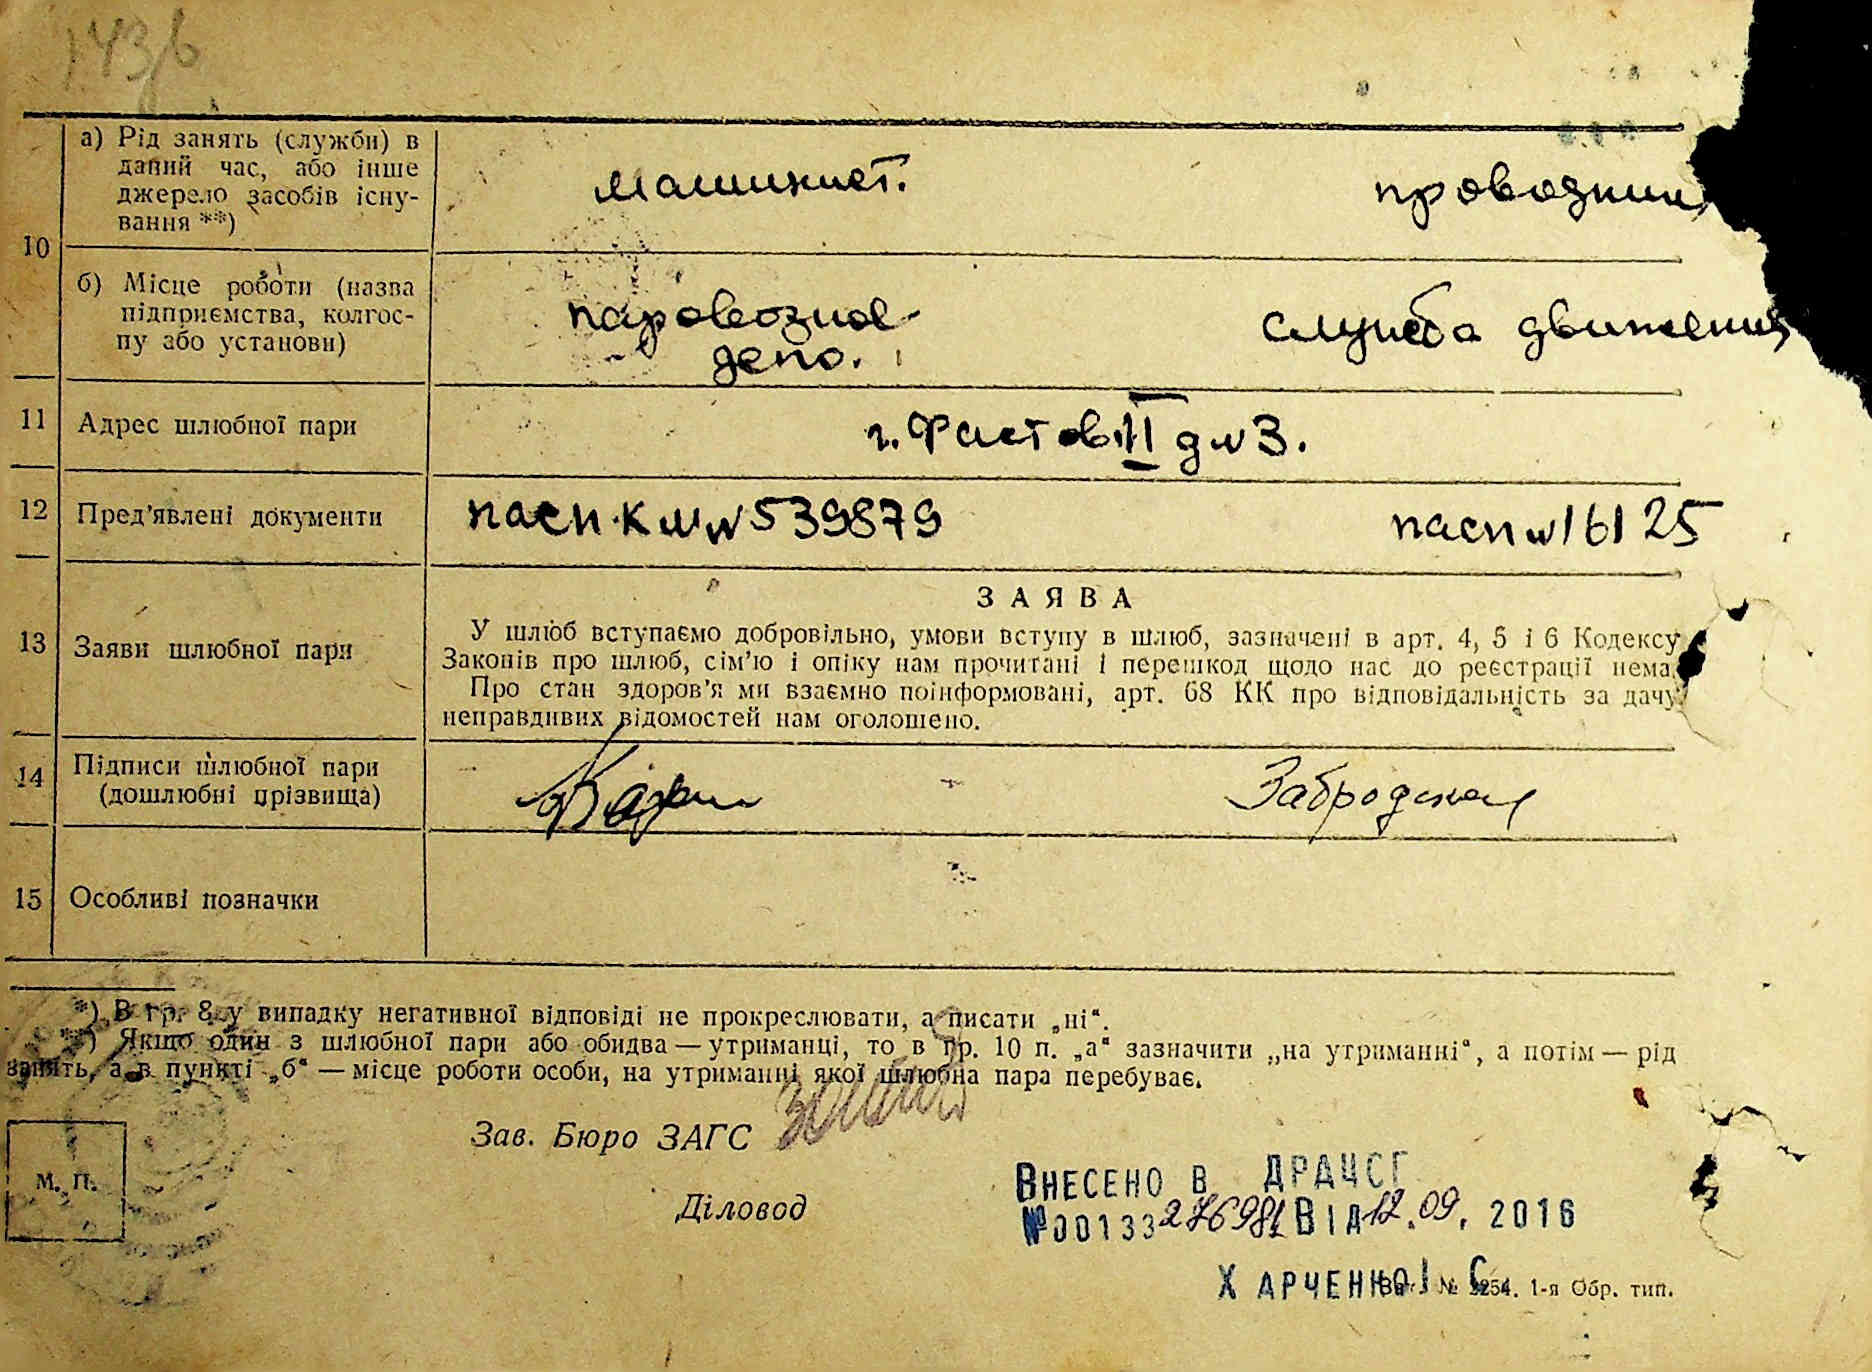 143б
10
а) Рід занять (служби) в
даний час, або інше
джерело засобів існу-
вання **)
машинист.
проводник
б) Місце роботи (назва
підприємства, колгос-
пу або установи)
паровозное
депо.
служба движения
11 Адрес шлюбної пари
г. Фастов II д № 3.
12 Пред'явлені документи
пасп. К М № 539879
пасп № 16125
13 Заяви шлюбної пари
ЗАЯВА
У шлюб вступаємо добровільно, умови вступу в шлюб, зазначені в арт. 4, 5 і 6 Кодексу
Законів про шлюб, сім'ю і опіку нам прочитані і перешкод щодо нас до реєстрації нема.
Про стан здоров'я ми взаємно поінформовані, арт. 68 КК про відповідальність за дачу
неправдивих відомостей нам оголошено.
14 Підписи шлюбної пари
(дошлюбні прізвища)
Забродская
15 Особливі позначки
*) В гр. 8 у випадку негативної відповіді не прокреслювати, а писати „ні“.
**) Якщо один з шлюбної пари або обидва — утриманці, то в гр. 10 п. „а“ зазначити „на утриманні“, а потім — рід
занять, а в пункті „б“ — місце роботи особи, на утриманні якої шлюбна пара перебуває.
Зав. Бюро ЗАГС
М. П.
Діловод
ВНЕСЕНО В ДРАЦСГ
№00133276981 ВІД 12.09.2016
ХАРЧЕНКО І. С.
№ 3254. 1-я Обр. тип.